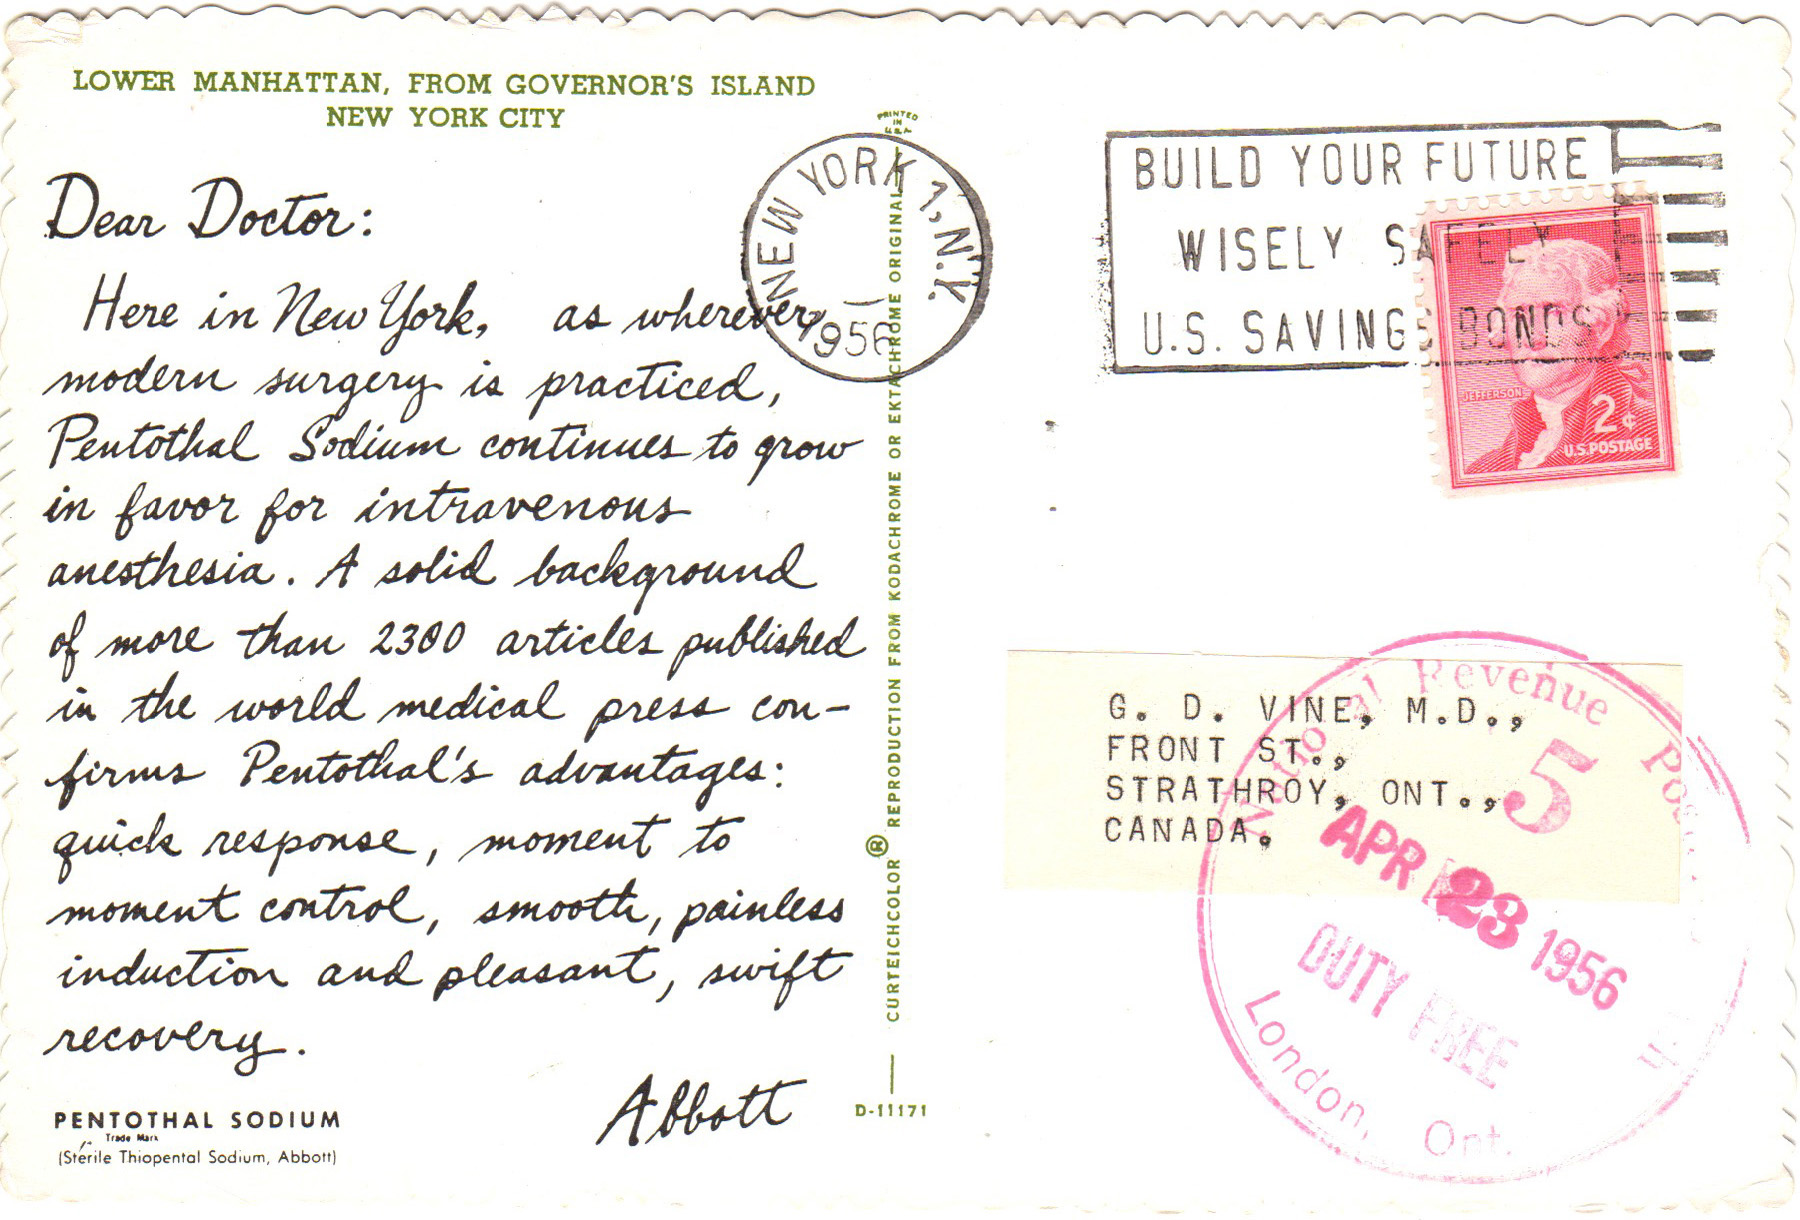 LOWER MANHATTAN, FROM GOVERNOR'S ISLAND
NEW YORK CITY
Dear Doctor:
Here in New York, as wherever
modern surgery is practiced,
Pentothal Sodium continues to grow
in favor for intravenous
anesthesia. A solid background
of more than 2300 articles published
in the world medical press con-
firms Pentothal's advantages:
quick response, moment to
moment control, smooth, painless
induction and pleasant, swift
recovery.
Abbott
PENTOTHAL SODIUM
Trade Mark
(Sterile Thiopental Sodium, Abbott)
PRINTED
IN
U.S.A.
CURTEICHCOLOR ® REPRODUCTION FROM KODACHROME OR EKTACHROME ORIGINAL
D-11171
NEW YORK 1, N.Y.
1956
BUILD YOUR FUTURE
WISELY SAFELY
U.S. SAVINGS BONDS
JEFFERSON
2¢
U.S. POSTAGE
G. D. VINE, M.D.,
FRONT ST.,
STRATHROY, ONT.,
CANADA.
National Revenue
5
APR 23 1956
DUTY FREE
London, Ont.